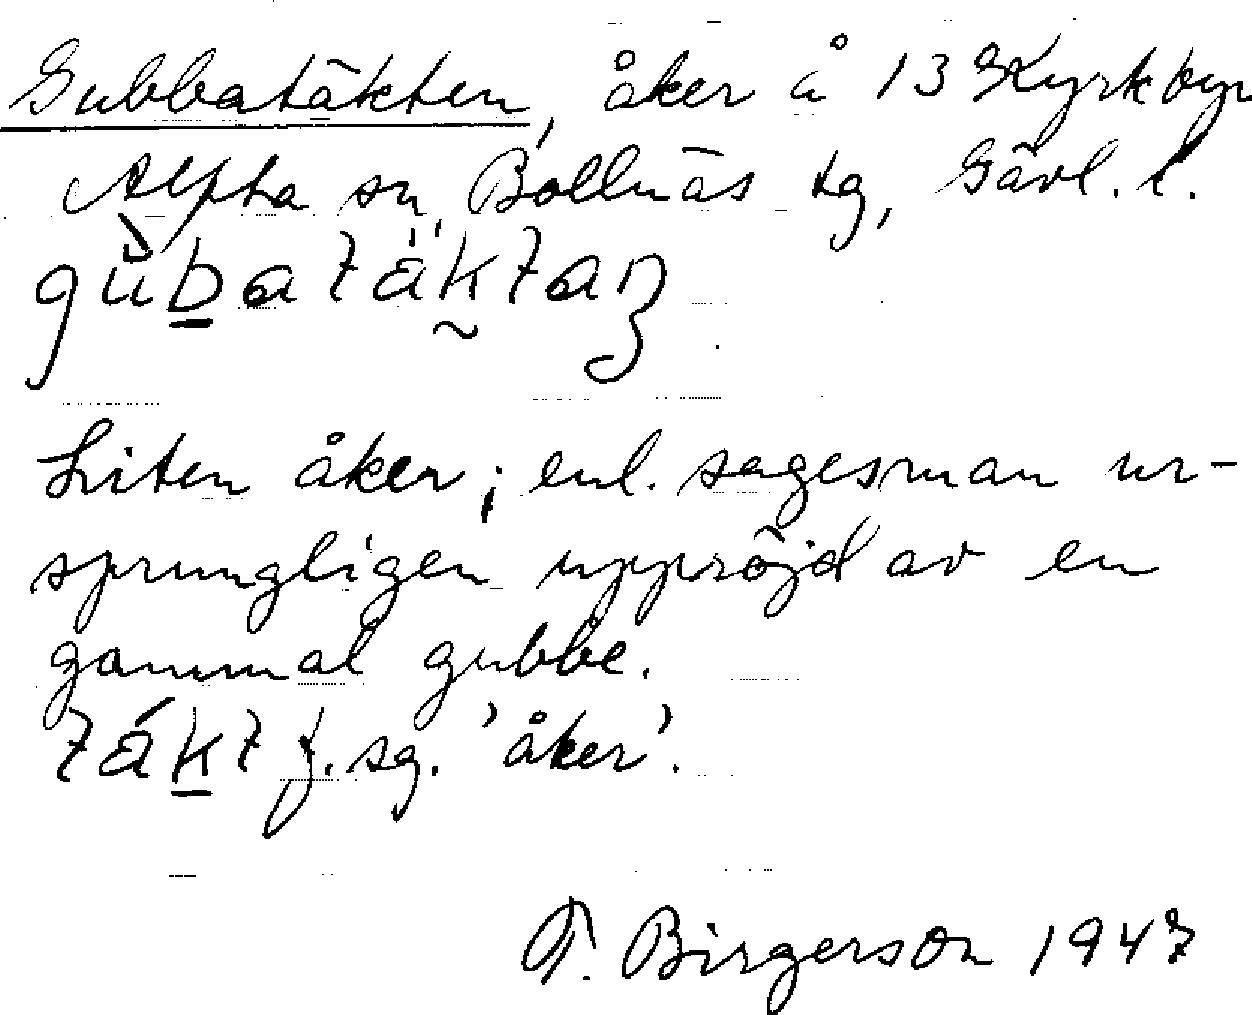 Gubbatäkten, åker å 13 Kyrkbyn
Alfta sn, Bollnäs tg, Gävl. l.
gùbatäktan
Liten åker; enl. sagesman ur-
sprungligen uppröjd av en
gammal gubbe.
täkt f. sg. 'åker'.
T. Birgerson 1947